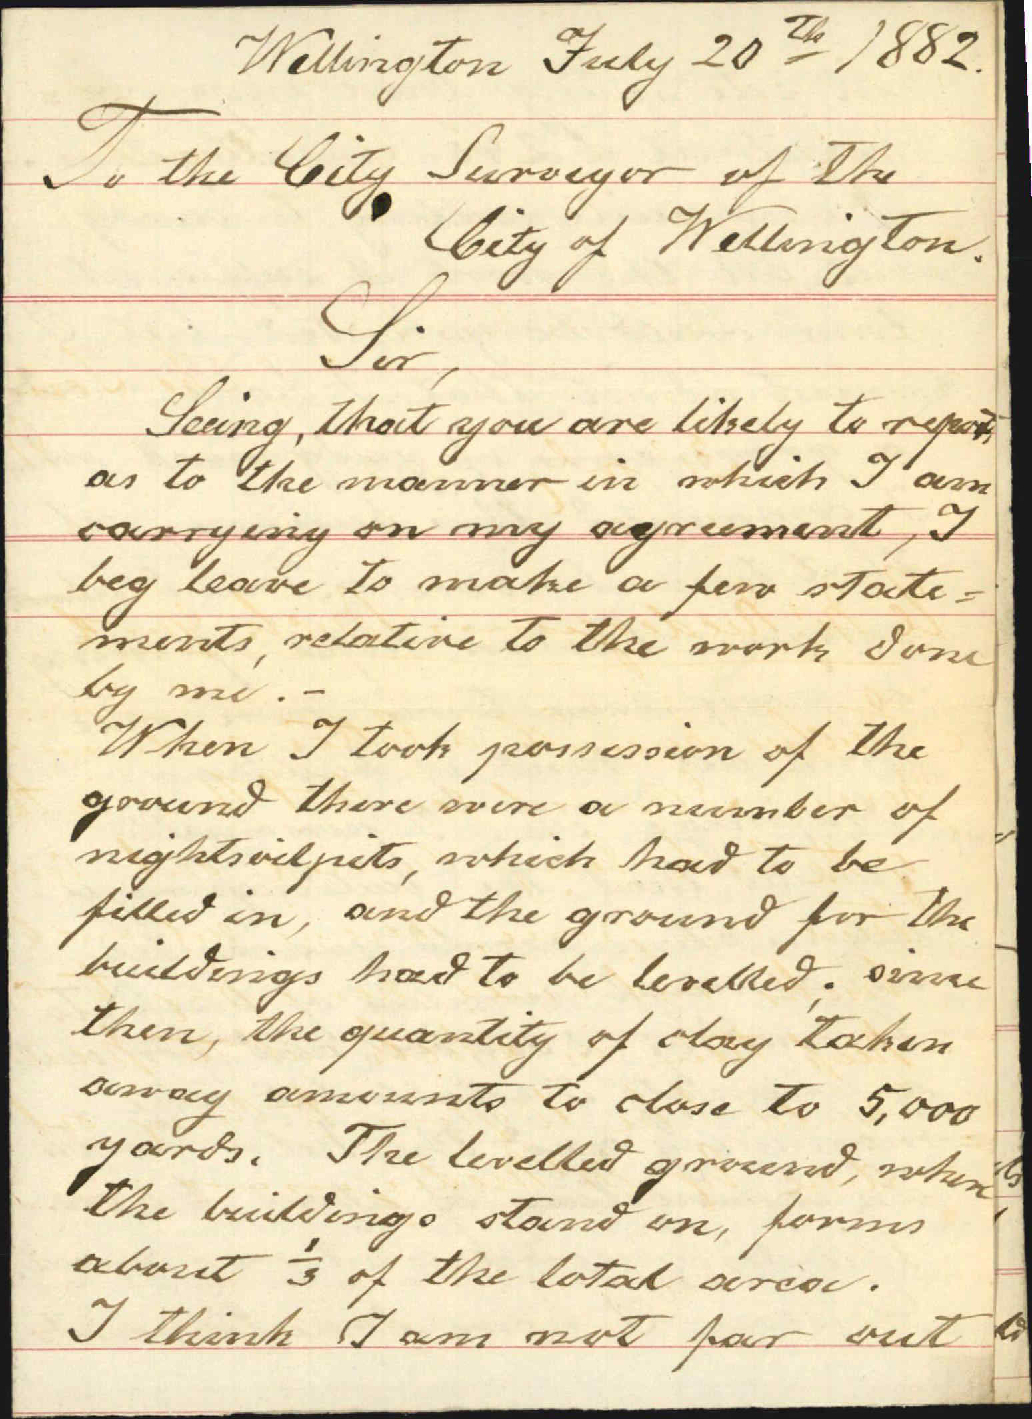 Wellington July 20th 1882.
To the City Surveyor of the
City of Wellington.
Sir,
Seeing, that you are likely to report,
as to the manner in which I am
carrying on my agreement, I
beg leave to make a few state=
ments, relative to the work done
by me. -
When I took possession of the
ground there were a number of
nightsoilpits, which had to be
filled in, and the ground for the
buildings had to be levelled; since
then, the quantity of clay taken
away amounts to close to 5,000
yards. The levelled ground, where
the buildings stand on, forms
about 1/3 of the total area.
I think I am not far out